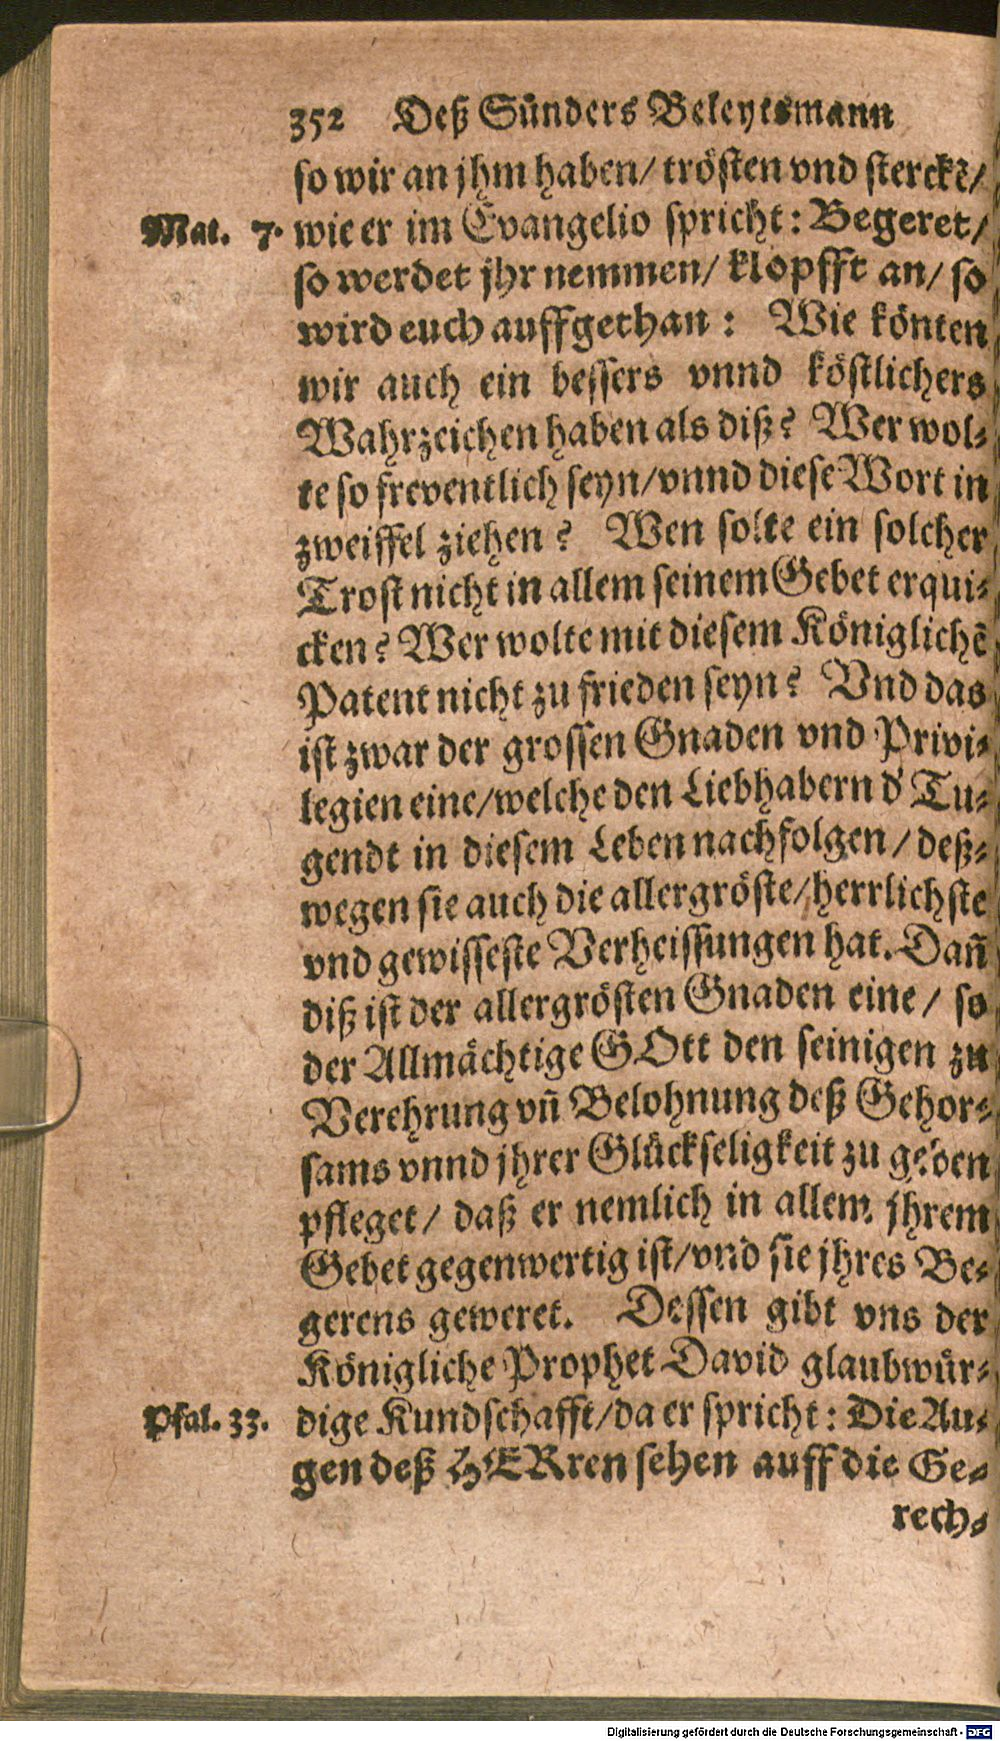 352 Deß Sünders Beleytsmann
so wir an jhm haben/ trösten vnd sterckẽ/
Mat. 7. wie er im Evangelio spricht: Begeret/
so werdet jhr nemmen/ klopfft an/ so
wird euch auffgethan: Wie könten
wir auch ein bessers vnnd köstlichers
Wahrzeichen haben als diß? Wer wol-
te so freventlich seyn/ vnnd diese Wort in
zweiffel ziehen? Wen solte ein solcher
Trost nicht in allem seinem Gebet erqui-
cken? Wer wolte mit diesem Königlichẽ
Patent nicht zu frieden seyn? Vnd das
ist zwar der grossen Gnaden vnd Privi-
legien eine/ welche den Liebhabern d' Tu-
gendt in diesem Leben nachfolgen/ deß-
wegen sie auch die allergröste/ herrlichste
vnd gewisseste Verheissungen hat. Dañ
diß ist der allergrösten Gnaden eine/ so
der Allmächtige GOtt den seinigen zu
Verehrung vñ Belohnung deß Gehor-
sams vnnd jhrer Glückseligkeit zu geben
pfleget/ daß er nemlich in allem jhrem
Gebet gegenwertig ist/ vnd sie jhres Be-
gerens geweret. Dessen gibt vns der
Königliche Prophet David glaubwür-
Psal. 33. dige Kundschafft/ da er spricht: Die Au-
gen deß HERren sehen auff die Ge-
rech-
Digitalisierung gefördert durch die Deutsche Forschungsgemeinschaft - DFG